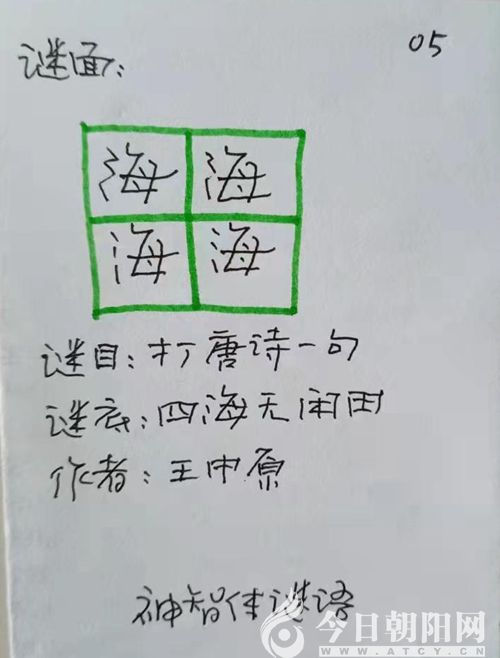 05
谜面:
海 海
海 海
谜目:打唐诗一句
谜底:四海无闲田
作者:王中原
神智体谜语
今日朝阳网
WWW.ATCY.CN